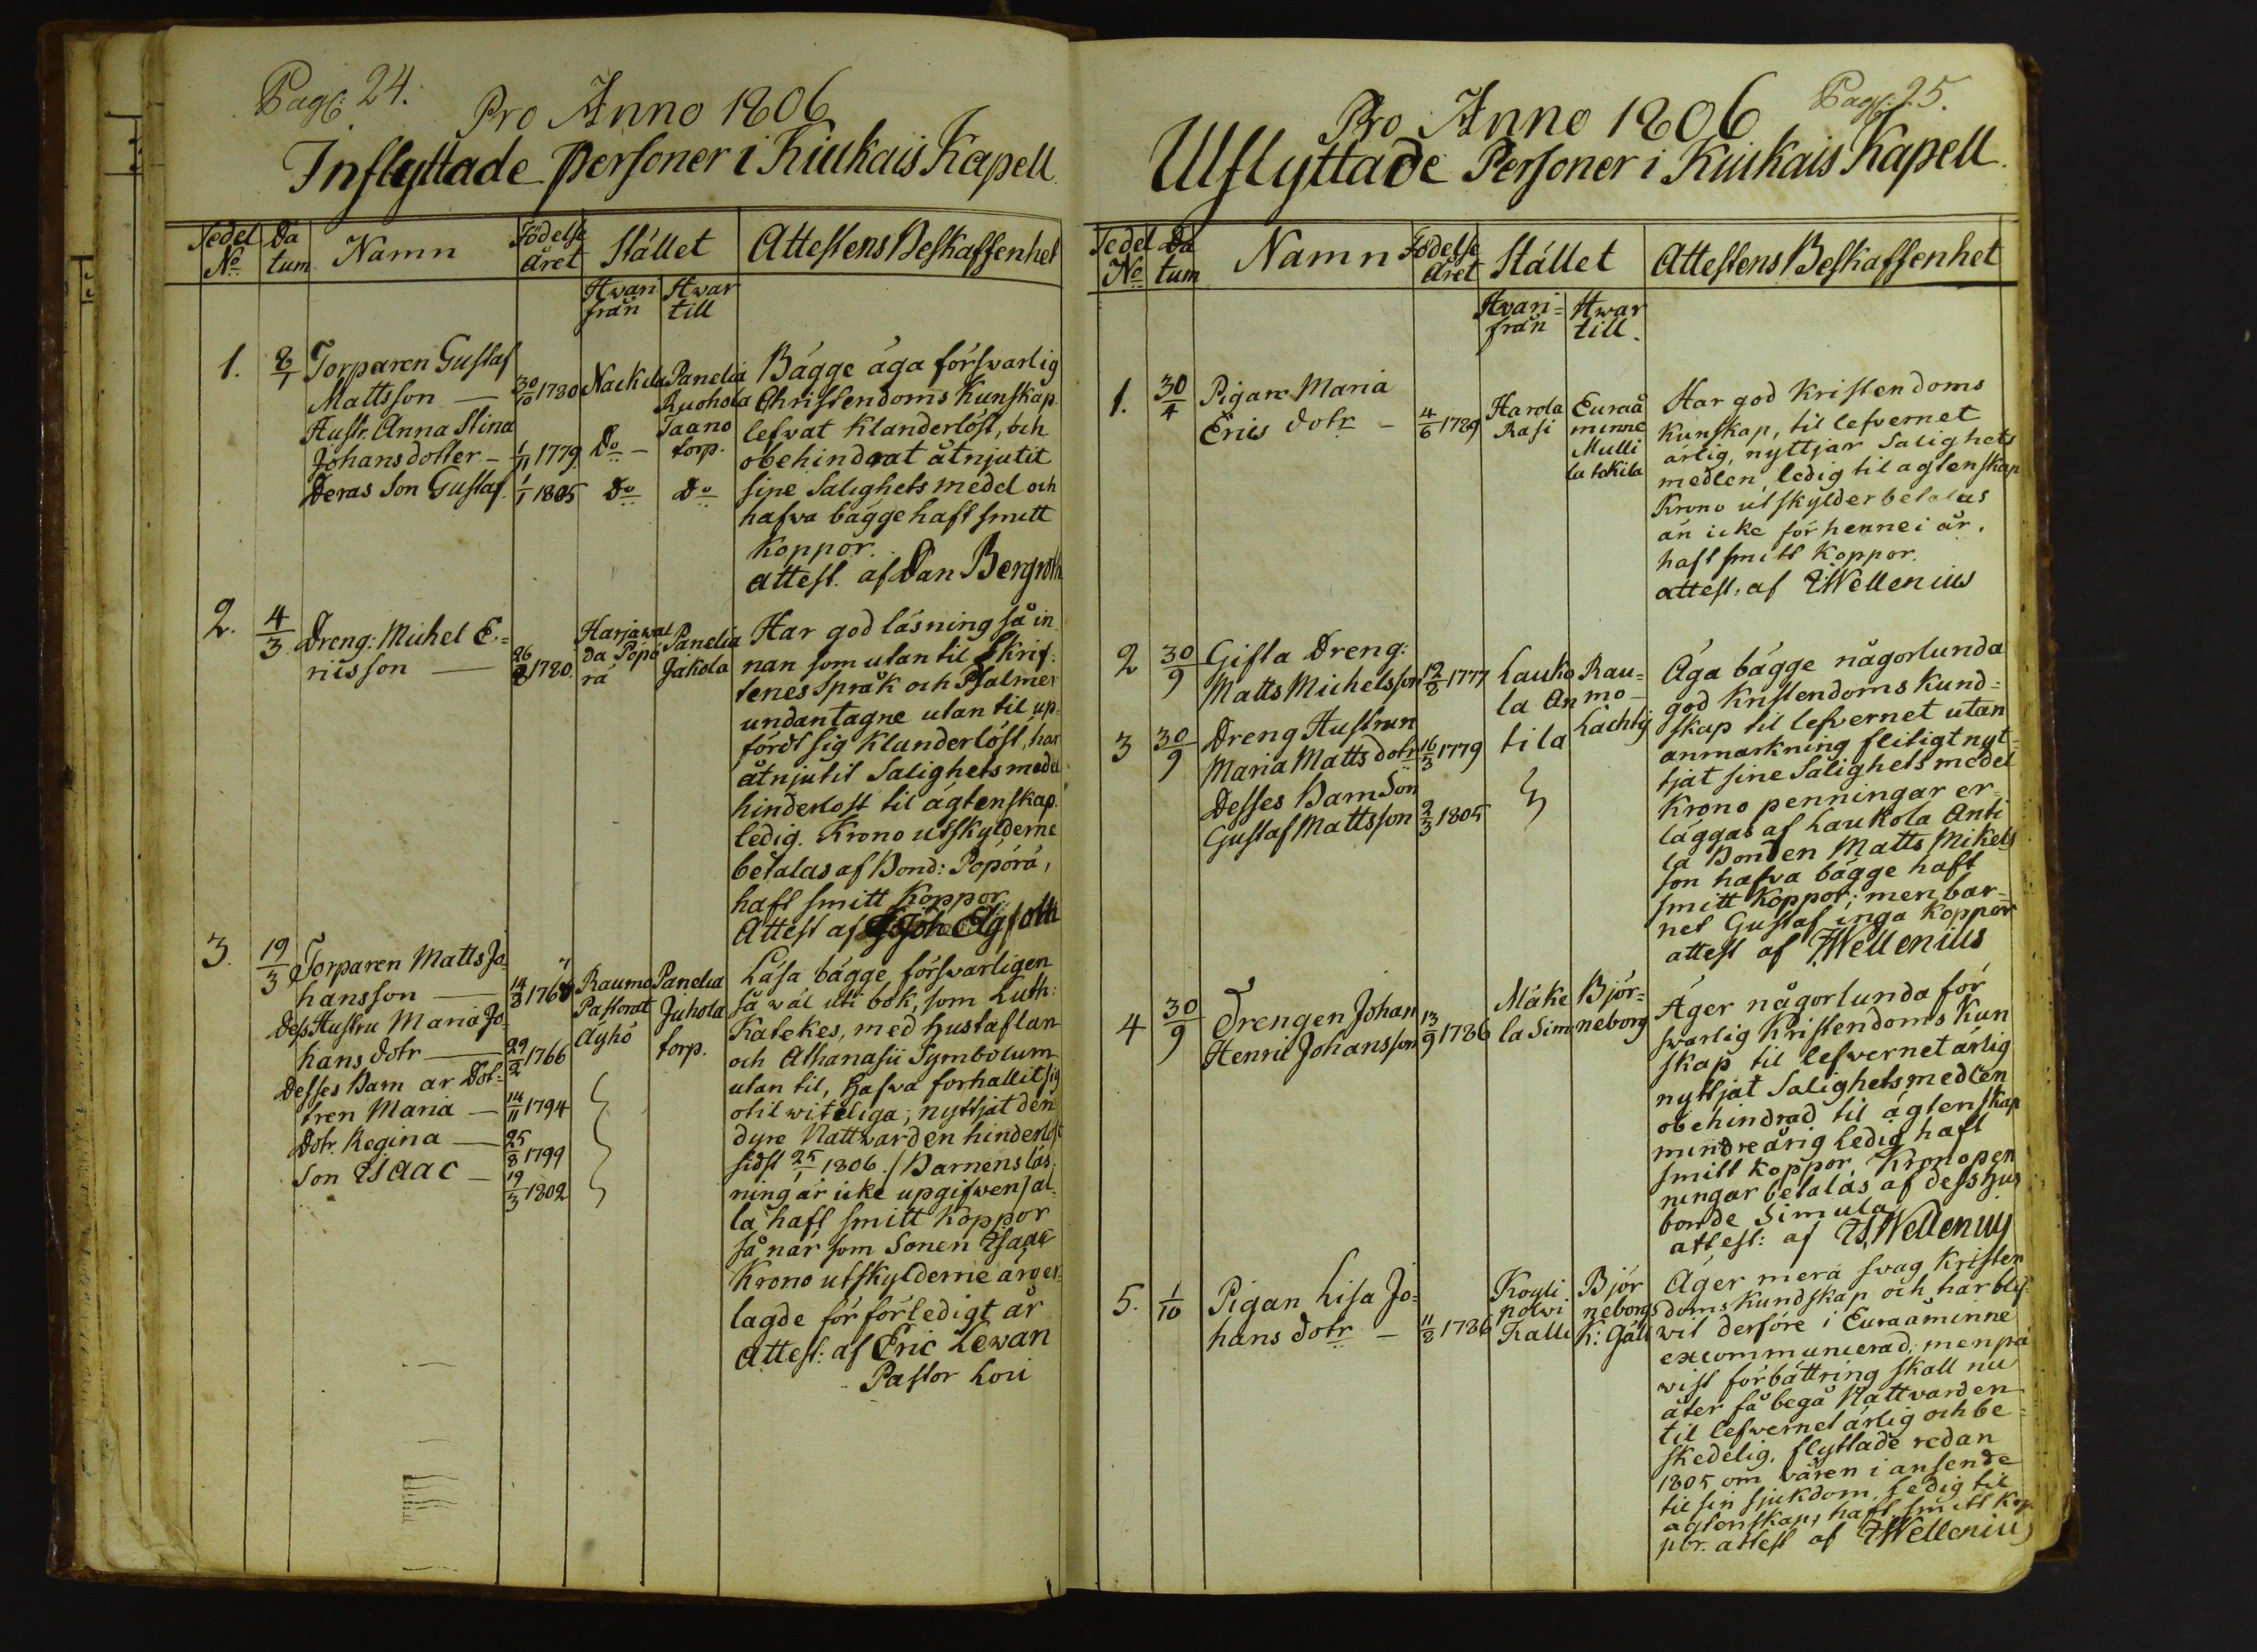 Pag: 24.
Pro Anno 1806
Inflyttade Personer i Kiukais Kapell
Sedel No
Da tum
Namn
Födelse Året
Stället
Attestens Beskaffenhet
Hwarifrån
Hwar till
1. 8/1 Torparen Gustaf
Mattsson — 30/10 1780 Nackila Panelia
Hustr. Anna Stina Ruohola
Johansdotter - 1/11 1779 Do - Taano torp.
Deras Son Gustaf. 1/1 1805 Do Do
Bägge äga förswarlig
Christendoms Kunskap
lefwat Klanderlöst, och
obehindrat åtnjutit
sine Salighets medel och
hafwa bägge haft smitt
Koppor.
attest. af Dan Bergroth
2. 4/3 Dreng: Michel E=
ricsson — 26/8 1780.
Harjawal
da Popö
rä
Panelia
Jakola
Har god läsning så in
nan som utan til Skrif=
tenes Språk och Psalmer
undantagne utan til up=
fördt sig Klanderlöst, har
åtnjutit Salighets medel
hinderlost til ägtenskap
ledig. Krono utskylderne
betalas af Bond: Popörä,
haft smitt Koppor
Attest af Joh Elgfoth
3. 19/3 Torparen Matts Jo
hansson — 14/8 176
Dess Hustru Maria Jo
hans dotr — 29/2 1766
Desses Barn är Dot=
tren Maria — 14/11 1794
Dotr. Regina — 25/8 1799
Son Isaac — 19/3 1802
Raumo
Pastorat
Äyhö
Panelia
Juhola
torp.
Läsa bägge förswarligen
så wäl uti bok, som Luth:
Katekes, med hustaflan
och Athanasii Symbolum
utan til, hafwa forhallit sig
otilwiteliga; nyttjat den
dyre Nattwarden hinderlost
sidst 25/1 1806. / Barnens läs
ning är icke upgifwen / al=
la haft smitt Koppor
så när som Sonen Isaac
Krono utskylderne är er=
lagde för förledigt år
attest: af Eric Lewan
Pastor Loci
Pag: 25.
Pro Anno 1806
Utflyttade Personer i Kiukais Kapell.
Sedel No
Da tum
Namn
Födelse Året
Stället
Attestens Beskaffenhet
Hwari=från
Hwar till.
1. 30/4 Pigan Maria
Erics dotr - 4/6 1789
Harola
Rasi
Euraå
minne
Mulli
la tokila
Har god Kristendoms
Kunskap, til lefvernet
ärlig, nyttjar Salighets
medlen ledig til agtenskap
Krono utskylder betalas
än icke för henne i år.
haft smitt Koppor.
attest. af IWellenius
2 30/9 Gifta Dreng:
Matts Michelsson 12/8 1777
3 30/9 Dreng Hustrun
Maria Matts dotr 16/3 1779
Desses Barn Son
Gustaf Mattsson 2/3 1805
Lauko
la An
tila
Rau=
mo
Lächtij
Äga bägge någorlunda
god Kristendoms Kund=
skap til lefvernet utan
anmarkning flitigt nyt=
tjat sine Salighets medel
Krono penningar er=
läggas af Laukola Anti
la Bonden Matts Mikels
son hafva bägge haft
smitt Koppor; men bar=
net Gustaf inga Koppor
attest af IWellenius
4 30/9 Drengen Johan
Henric Johansson 13/9 1786
Mäke
la Sim
Björ=
neborg
Äger någorlunda för
svarlig Kristendoms Kun
skap til lefvernet ärlig
nyttjat Salighetsmedlen
obehindrad til ägtenskap
mindreårig ledig haft
smitt koppor, Kronopen
ningar betalas af dess hus
bonde Simula
attest: af IsWellenius
5. 1/10 Pigan Lisa Jo=
hans dotr - 11/8 1786
Koyli
polwi
Kalli
Björ
neborgs
K: Gåll
Äger mera svag Kristen
doms Kundskap och har blif=
wit derföre i Euraåminne
excommunicerad, men på
wist förbättring skall nu
åter få begå Nattvarden
til lefvernet ärlig och be=
skedelig, flyttade redan
1805 om våren i ansende
til sin sjukdom, ledig til
agtenskap, haft smitt Kop
por. attest af IWellenius